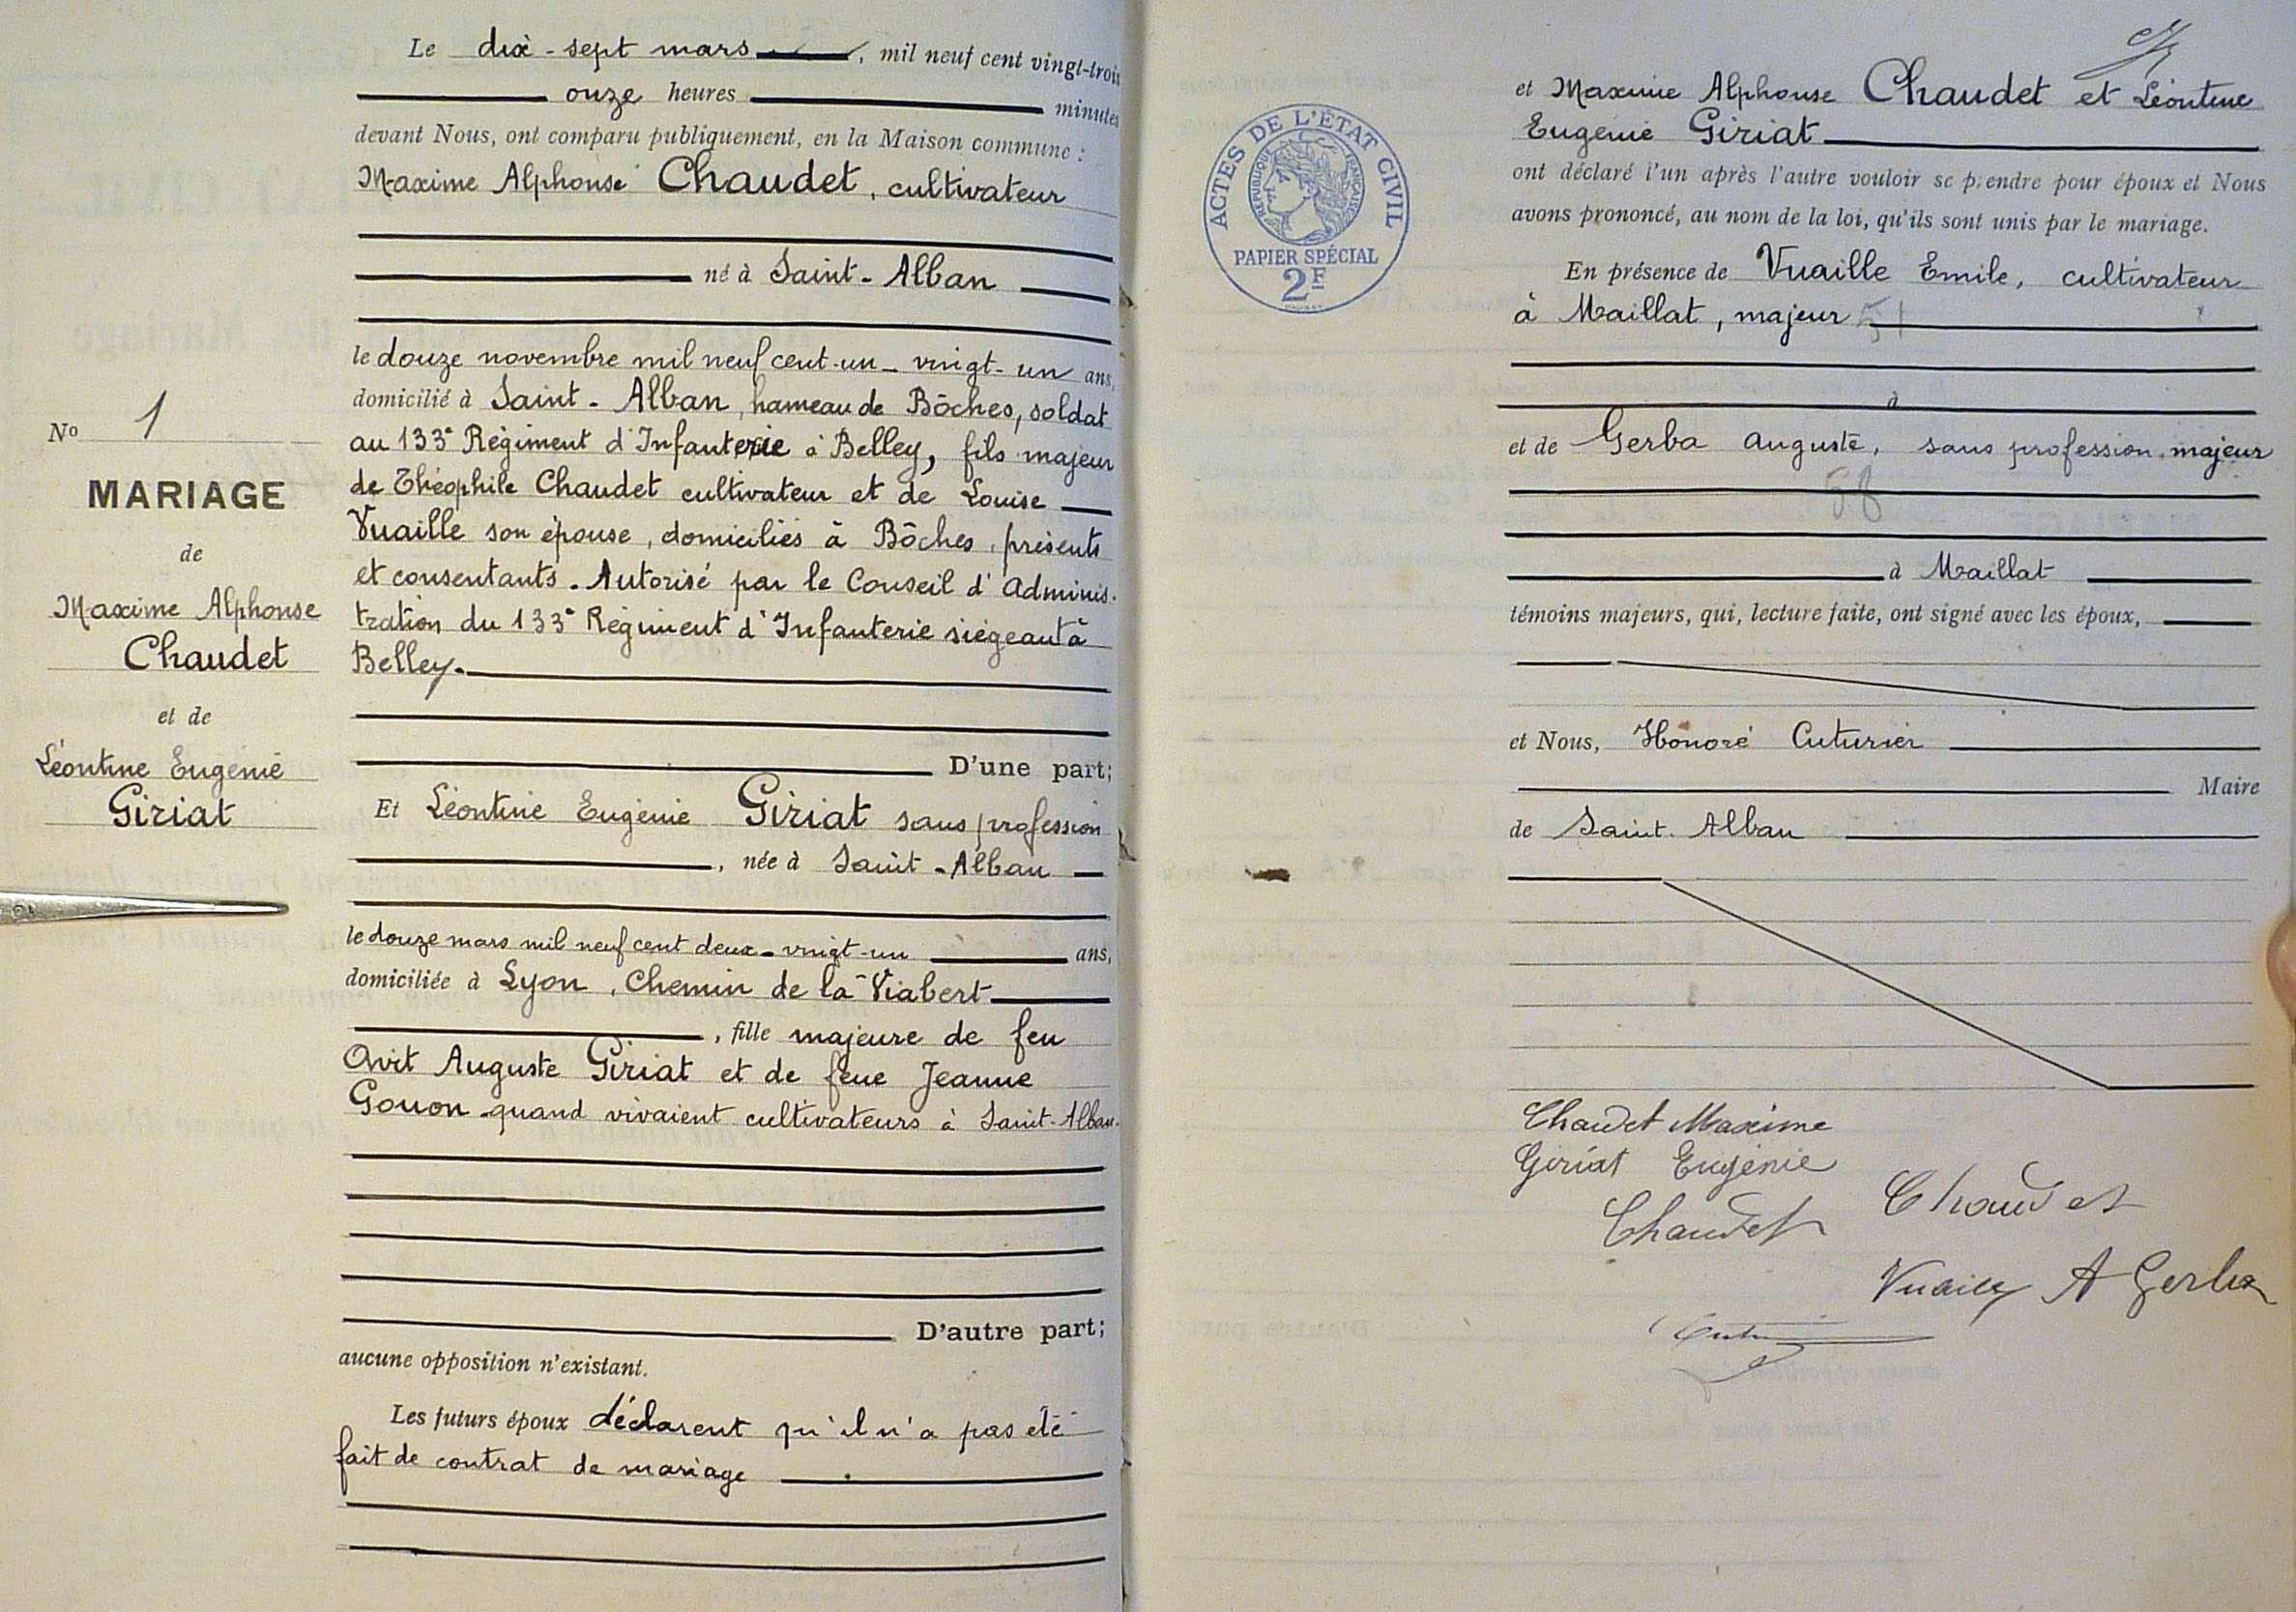 Le dix-sept mars, mil neuf cent vingt-trois
onze heures minutes
devant Nous, ont comparu publiquement, en la Maison commune :
Maxime Alphonse Chaudet, cultivateur
né à Saint-Alban
le douze novembre mil neuf cent-un - vingt-un ans,
domicilié à Saint-Alban, hameau de Bôches, soldat
au 133e Régiment d'Infanterie à Belley, fils majeur
de Théophile Chaudet cultivateur et de Louise
Vuaille son épouse, domiciliés à Bôches, présents
et consentants. Autorisé par le Conseil d'Adminis-
tration du 133e Régiment d'Infanterie siégeant à
Belley.
D'une part;
Et Léontine Eugénie Giriat sans profession
, née à Saint-Alban
le douze mars mil neuf cent deux - vingt-un ans,
domiciliée à Lyon, Chemin de la Viabert
, fille majeure de feu
Avit Auguste Giriat et de feue Jeanne
Gouon quand vivaient cultivateurs à Saint-Alban.
D'autre part;
aucune opposition n'existant.
Les futurs époux déclarent qu'il n'a pas été
fait de contrat de mariage
No 1
MARIAGE
de
Maxime Alphonse
Chaudet
et de
Léontine Eugénie
Giriat
ACTES DE L'ÉTAT CIVIL
RÉPUBLIQUE FRANÇAISE
PAPIER SPÉCIAL
2F
et Maxime Alphonse Chaudet et Léontine
Eugénie Giriat
ont déclaré l'un après l'autre vouloir se prendre pour époux et Nous
avons prononcé, au nom de la loi, qu'ils sont unis par le mariage.
En présence de Vuaille Emile, cultivateur
à Maillat, majeur 51
à
et de Gerba Auguste, sans profession, majeur
58
à Maillat
témoins majeurs, qui, lecture faite, ont signé avec les époux,
et Nous, Honoré Cuturier
Maire
de Saint-Alban
Chaudet Maxime
Giriat Eugénie
Chaudet Chaudet
A Gerba